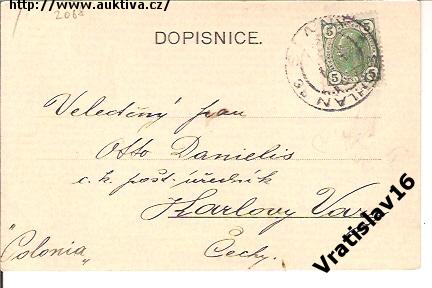 http://www.auktiva.cz/
2068
DOPISNICE.
5 5
Velectěný pan
Otto Danielis
c. k. pošt. úředník
Karlovy Vary
"Colonia"
Čechy.
Vratislav16